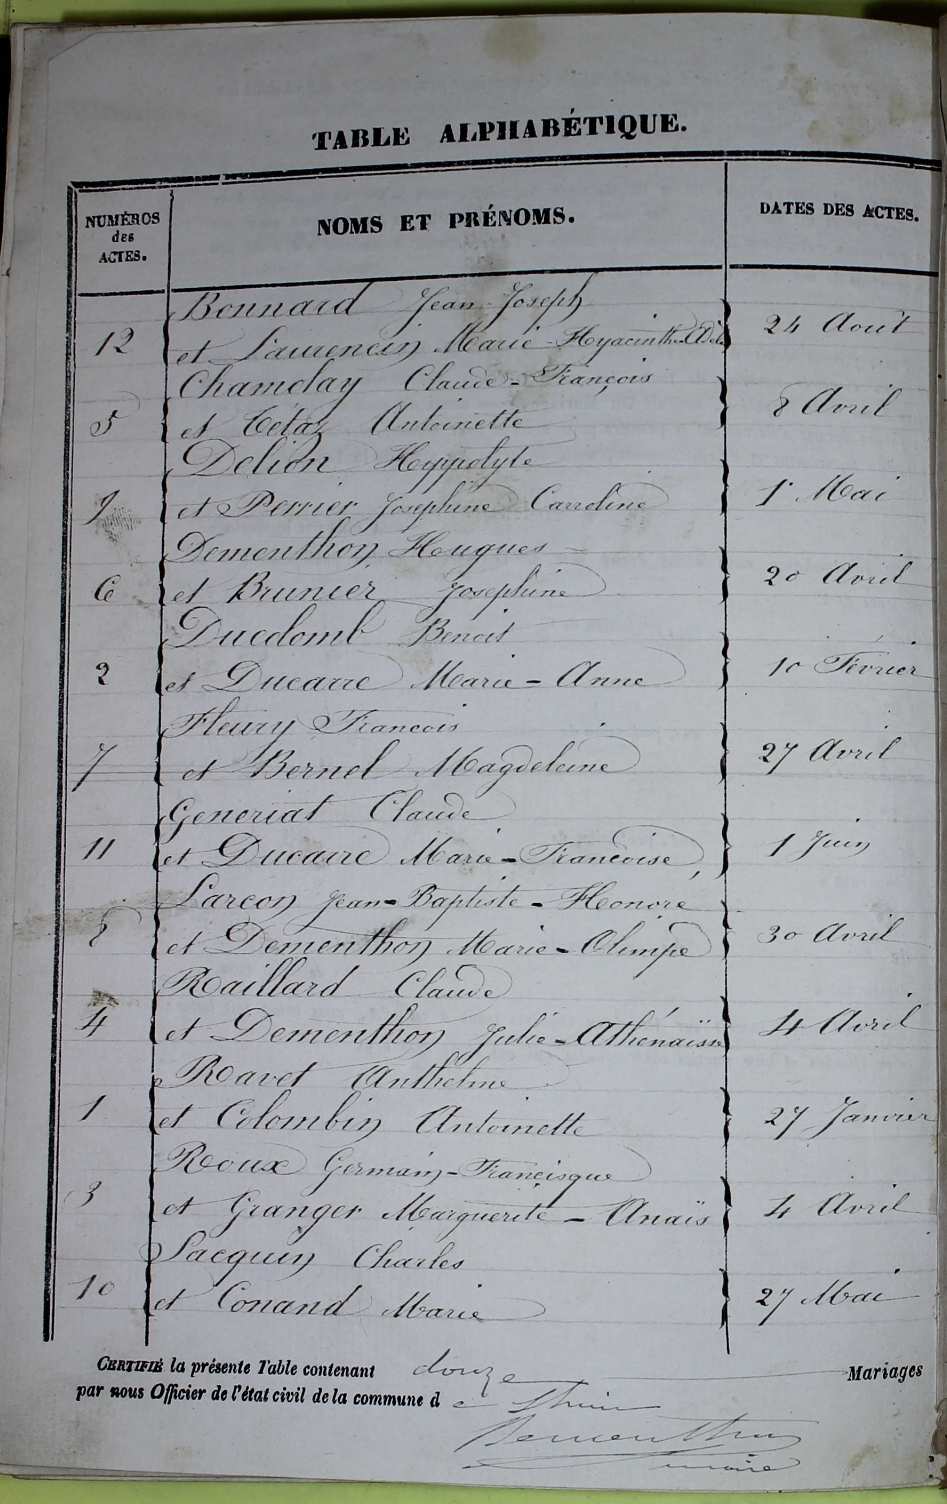 TABLE ALPHABÉTIQUE.
NUMÉROS
des
ACTES.
NOMS ET PRÉNOMS.
DATES DES ACTES.
Bonnard Jean-Joseph
12 et Laurencin Marie-Hyacinthe-Adèle 24 Aout
Chamelay Claude-François
5 et Cétaz Antoinette 8 Avril
Delion Hyppolyte
9 et Perrier Joséphine Carroline 1r Mai
Dementhon Hugues
6 et Brunier Joséphine 20 Avril
Ducolomb Benoit
2 et Ducarre Marie-Anne 10 Février
Fleury François
7 et Bernel Magdeleine 27 Avril
Goneriat Claude
11 et Ducarre Marie-Françoise 1 Juin
Larcon Jean-Baptiste-Honore
8 et Dementhon Marie-Olimpe 30 Avril
Raillard Claude
4 et Dementhon Julie-Athénaïsse 4 Avril
Ravet Anthelme
1 et Colombin Antoinette 27 Janvier
Roux Germain-Francisque
3 et Granger Marguerite-Anaïs 4 Avril
Sacquin Charles
10 et Conand Marie 27 Mai
CERTIFIÉ la présente Table contenant douze Mariages
par nous Officier de l'état civil de la commune de
Dementhon
maire